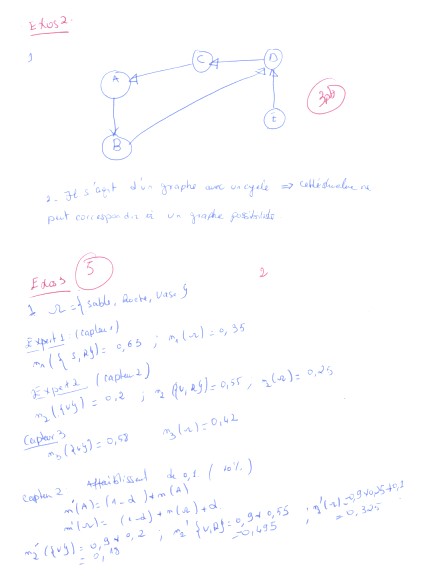 Exos 2.
1
C
D
A
B
E
3pts
2 - Il s'agit d'un graphe avec un cycle ⇒ ne
peut correspondre à un graphe possibiliste.
Exos 3
5
2
1 Ω = { Sable, Roche, Vase }
Expert 1 (capteur 1)
m₁({S,R}) = 0,65 ; m₁(Ω) = 0,35
Expert 2 (capteur 2)
m₂({V}) = 0,2 ; m₂({V,R}) = 0,55, m₂(Ω) = 0,25
Capteur 3
m₃({V}) = 0,58 m₃(Ω) = 0,42
capteur 2 Affaiblissement de 0,1 (10%)
m'(A) = (1-α) * m(A)
m'(Ω) = (1-α) * m(Ω) + α.
m₂'({V}) = 0,9 * 0,2 ; m₂'{V,R} = 0,9 * 0,55 ; m₂'(Ω) = 0,9*0,25+0,1
= 0,18 = 0,495 = 0,325